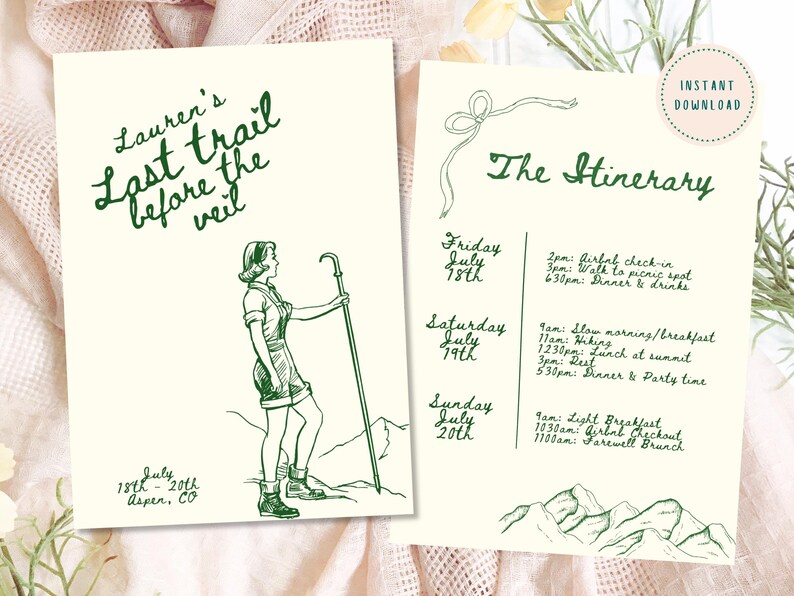 Lauren's
Last trail
before the
veil
July
18th - 20th
Aspen, CO
INSTANT
DOWNLOAD
The Itinerary
Friday
July
18th
2pm: Airbnb check-in
3pm: Walk to picnic spot
630pm: Dinner & drinks
Saturday
July
19th
9am: Slow morning/breakfast
11am: Hiking
1230pm: Lunch at summit
3pm: Rest
530pm: Dinner & Party time
Sunday
July
20th
9am: Light Breakfast
1030am: Airbnb Checkout
1100am: Farewell Brunch